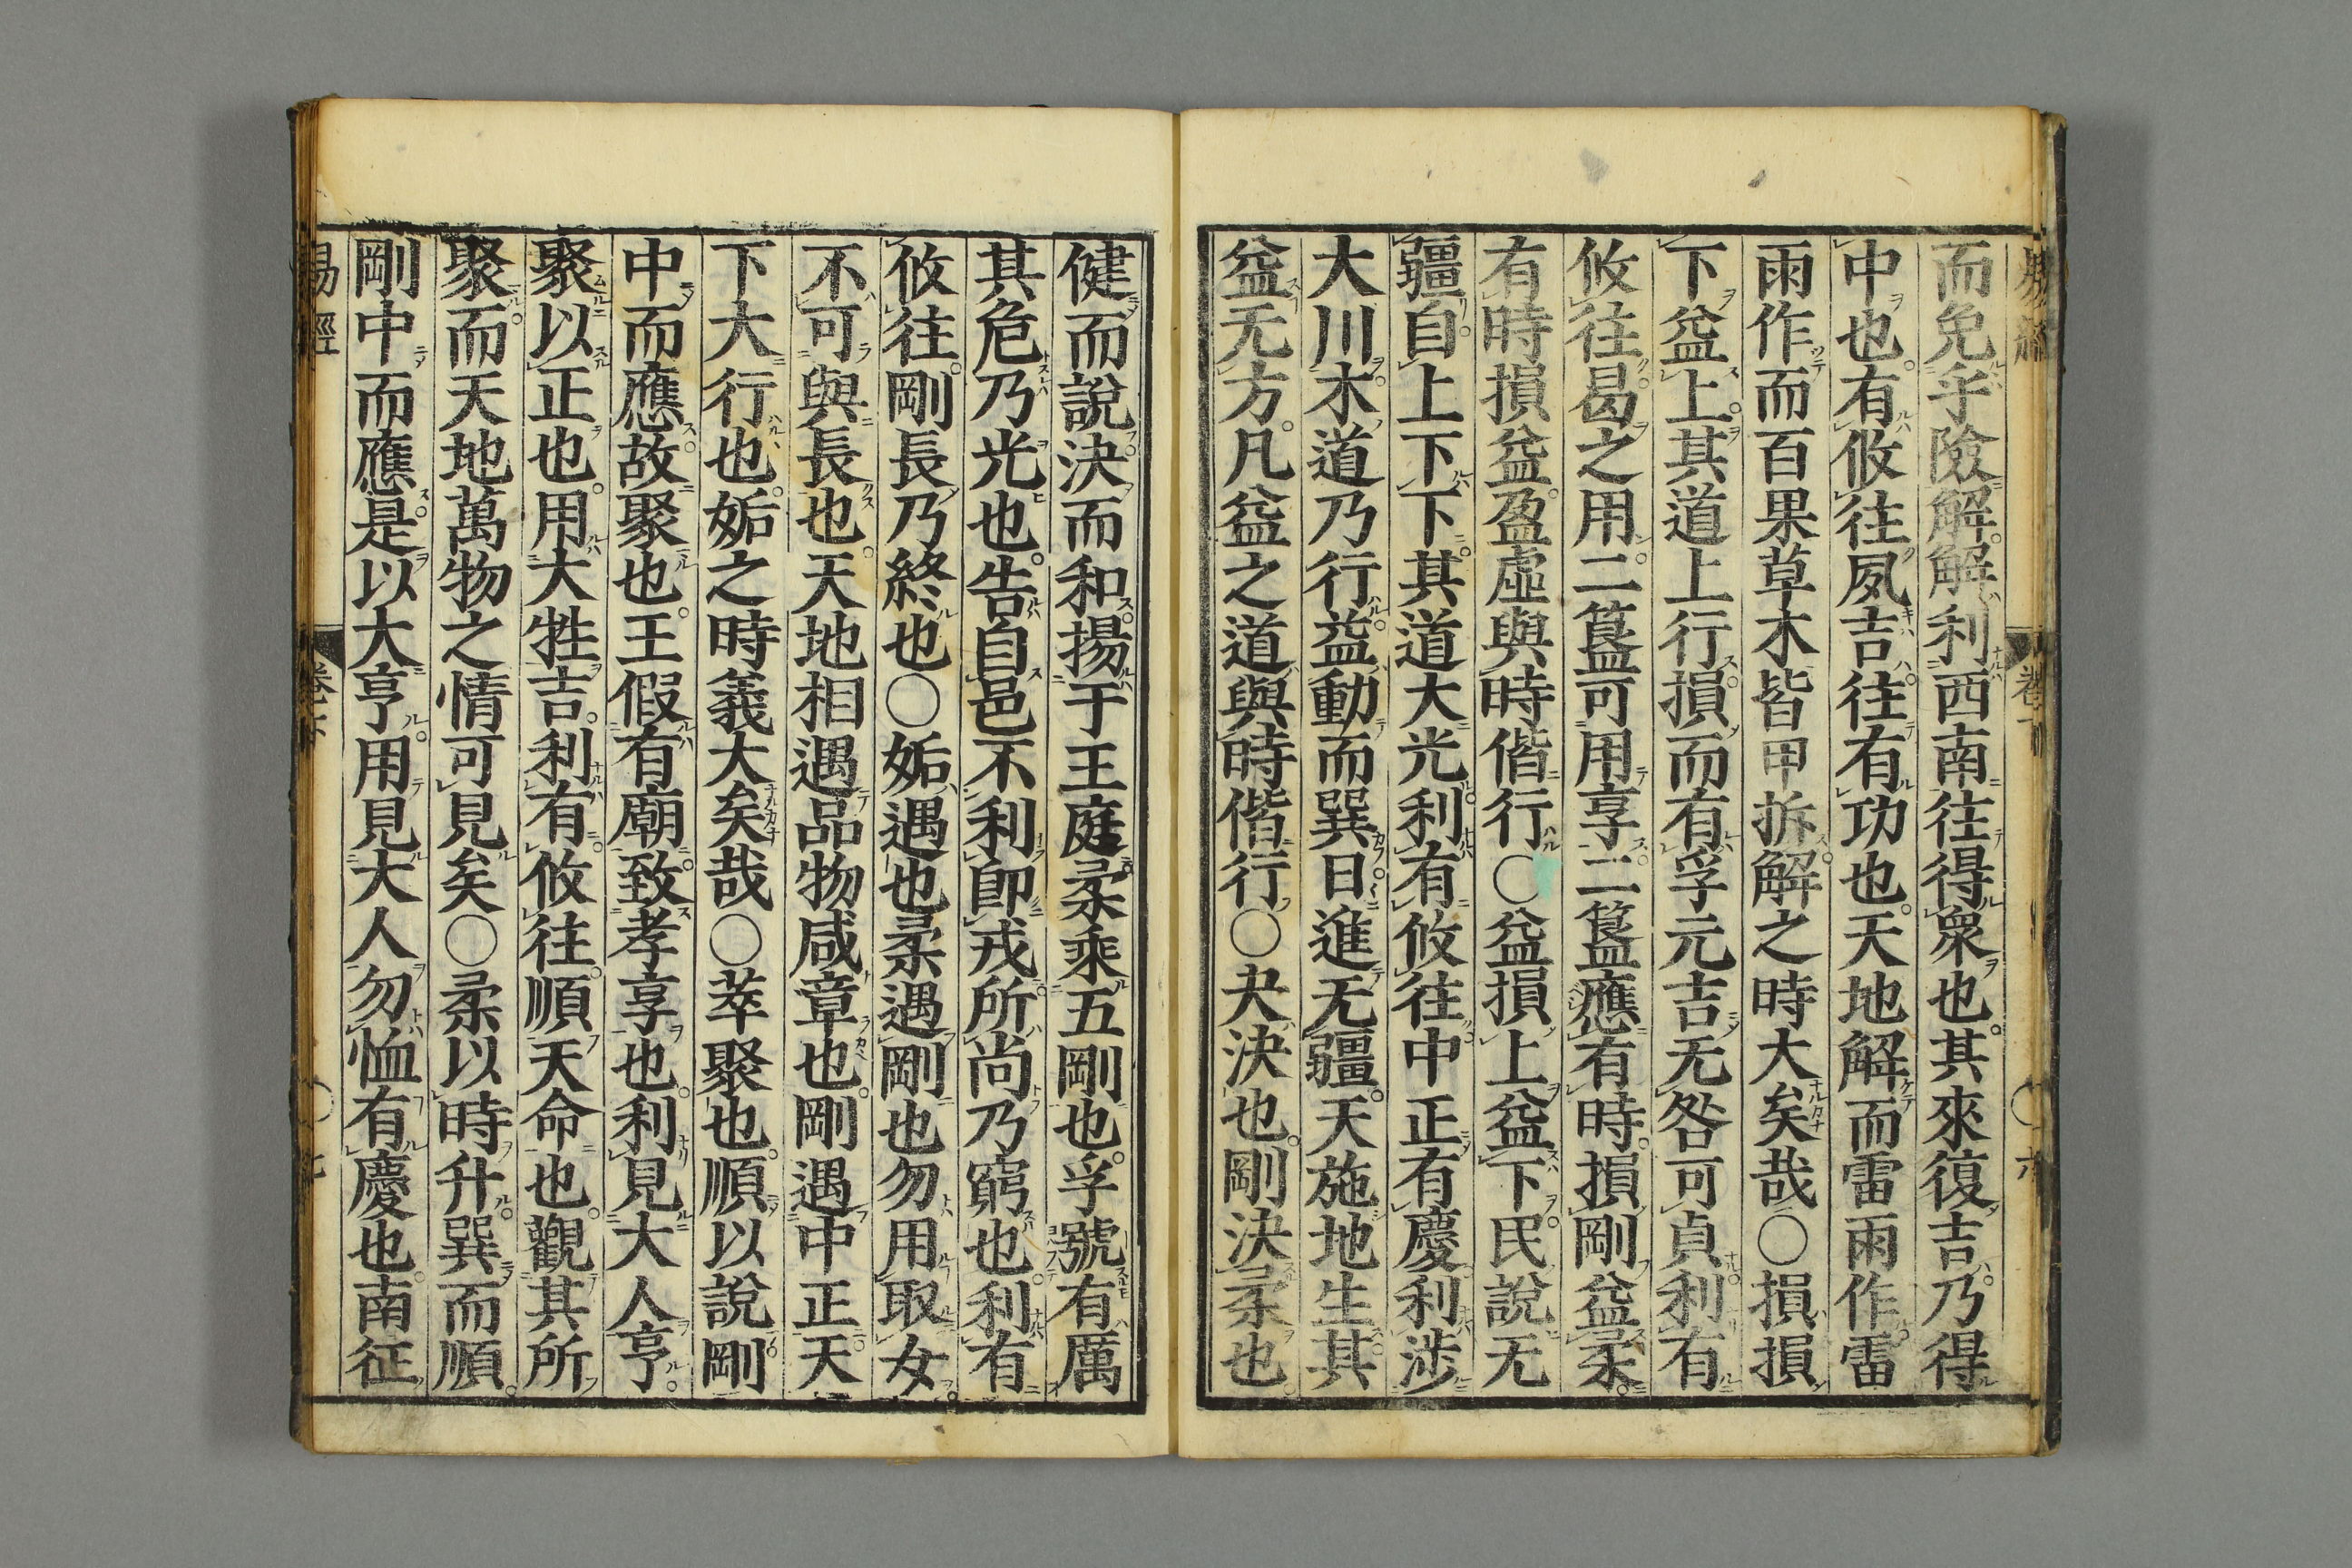 而免乎險解解利西南往得衆也其來復吉乃得
中也有攸往夙吉往有功也天地解而雷雨作雷
雨作而百果草木皆甲拆解之時大矣哉○損損
下益上其道上行損而有孚元吉无咎可貞利有
攸往曷之用二簋可用享二簋應有時損剛益柔
有時損益盈虛與時偕行○益損上益下民說无
疆自上下下其道大光利有攸往中正有慶利涉
大川木道乃行益動而巽日進无疆天施地生其
益无方凡益之道與時偕行○夬決也剛決柔也
健而說決而和揚于王庭柔乘五剛也孚號有厲
其危乃光也告自邑不利即戎所尚乃窮也利有
攸往剛長乃終也○姤遇也柔遇剛也勿用取女
不可與長也天地相遇品物咸章也剛遇中正天
下大行也姤之時義大矣哉○萃聚也順以說剛
中而應故聚也王假有廟致孝享也利見大人亨
聚以正也用大牲吉利有攸往順天命也觀其所
聚而天地萬物之情可見矣○柔以時升巽而順
剛中而應是以大亨用見大人勿恤有慶也南征
易經